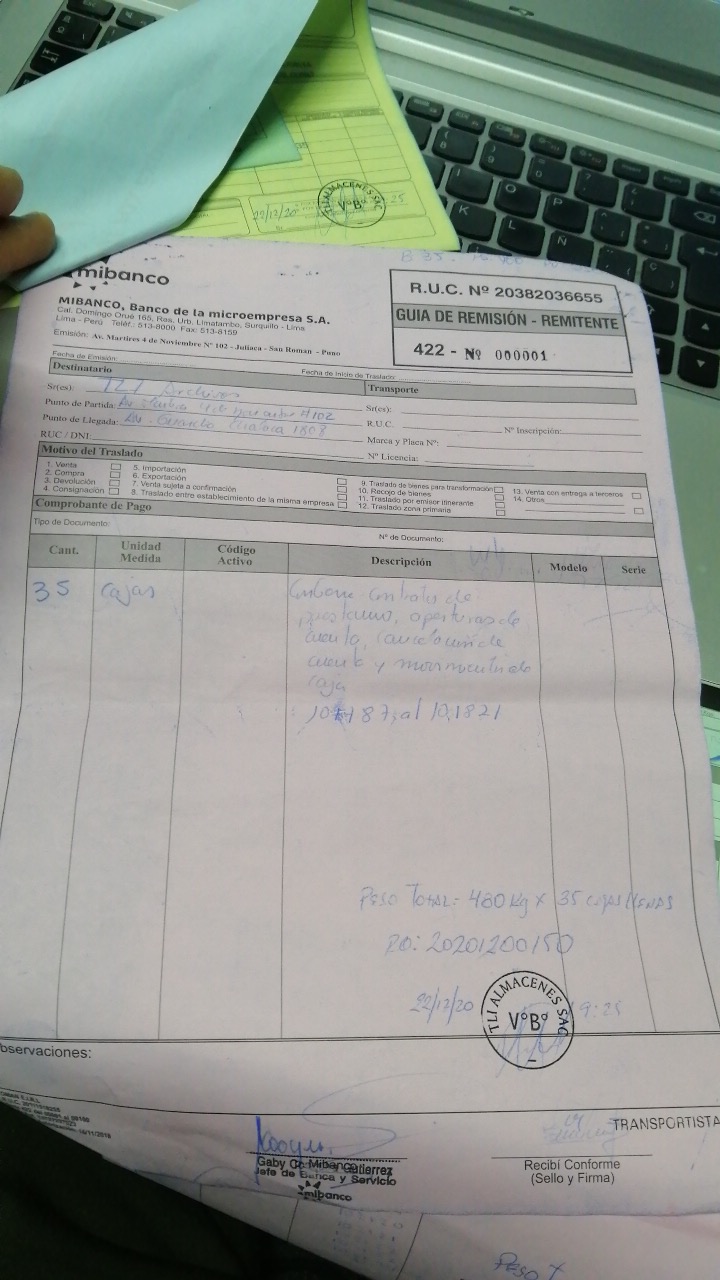 TLI ALMACENES SAC
VºBº
22/12/20
mibanco
MIBANCO, Banco de la microempresa S.A.
Cal. Domingo Orue 165, Res. Urb. Limatambo, Surquillo - Lima
Lima - Perú Teléf.: 513-8000 Fax: 513-8159
Emisión: Av. Martires 4 de Noviembre Nº 102 - Juliaca - San Roman - Puno
R.U.C. Nº 20382036655
GUIA DE REMISIÓN - REMITENTE
422 - Nº 000001
Fecha de Emisión:
Fecha de Inicio de Traslado:
Destinatario
Transporte
Sr(es): TLI Archivos
Sr(es):
Punto de Partida: Av. 4 de noviembre #102
R.U.C.
Nº Inscripción:
Punto de Llegada: Av.
Marca y Placa Nº:
RUC / DNI:
Nº Licencia:
Motivo del Traslado
1. Venta
2. Compra
3. Devolución
4. Consignación
5. Importación
6. Exportación
7. Venta sujeta a confirmación
8. Traslado entre establecimiento de la misma empresa
9. Traslado de bienes para transformación
10. Recojo de bienes
11. Traslado por emisor itinerante
12. Traslado zona primaria
13. Venta con entrega a terceros
14. Otros
Comprobante de Pago
Tipo de Documento:
Nº de Documento:
Cant.
Unidad Medida
Código Activo
Descripción
Modelo
Serie
35 cajas
contratos de
prestamo, aperturas de
cuenta, cancelacion de
cuenta y movimiento de
caja
al 10,1821
PESO TOTAL: 480 Kg x 35 CAJAS LLENAS
P.O: 20201200150
22/12/20 9:25
TLI ALMACENES SAC
VºBº
bservaciones:
TRANSPORTISTA
Gaby Gutierrez
Jefe de Banca y Servicio
mibanco
Recibí Conforme
(Sello y Firma)
PESO